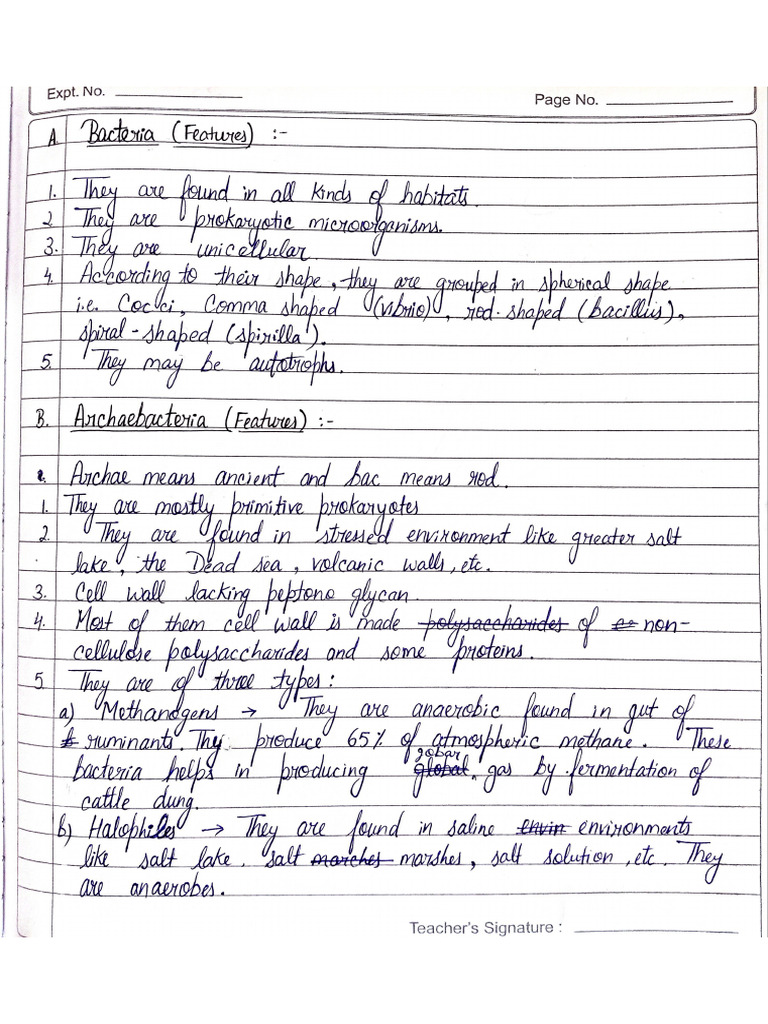 Expt. No.
Page No.
A. Bacteria (Features) :-
1. They are found in all kinds of habitats.
2. They are prokaryotic microorganisms.
3. They are unicellular.
4. According to their shape, they are grouped in spherical shape
i.e. Cocci, Comma shaped (vibrio), rod-shaped (bacillus),
spiral-shaped (spirilla).
5. They may be autotrophs.
B. Archaebacteria (Features) :-
Archae means ancient and bac means rod.
1. They are mostly primitive prokaryotes
2. They are found in stressed environment like greater salt
lake, the Dead sea, volcanic walls, etc.
3. Cell wall lacking peptono glycan.
4. Most of them cell wall is made polysaccharides of non-
cellulose polysaccharides and some proteins.
5. They are of three types:
a) Methanogens → They are anaerobic found in gut of
ruminants. Thy produce 65% of atmospheric methane. These
bacteria helps in producing global gobar gas by fermentation of
cattle dung.
b) Halophiles → They are found in saline envin environments
like salt lake, salt marches marshes, salt solution, etc. They
are anaerobes.
Teacher's Signature :